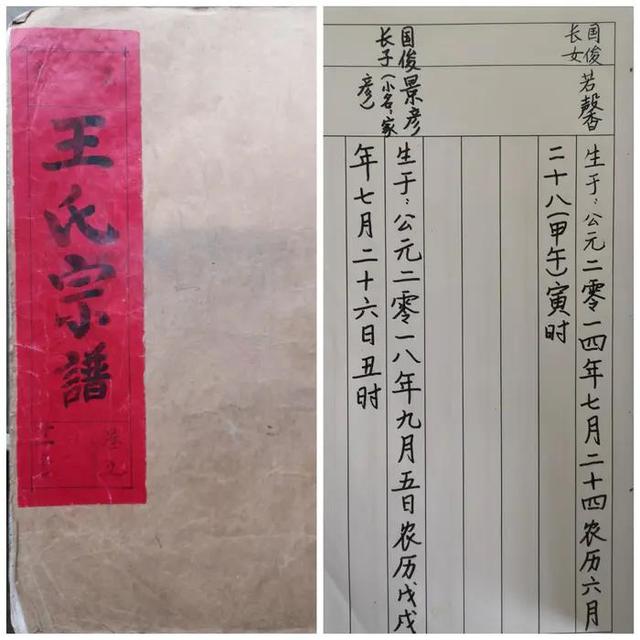 王氏宗譜
国俊
长女
若馨
生于：公元二零一四年七月二十四农历六月
二十八（甲午）寅时
国俊景彦
长子（小名：家
彦）
生于：公元二零一八年九月五日农历戊戌
年七月二十六日丑时